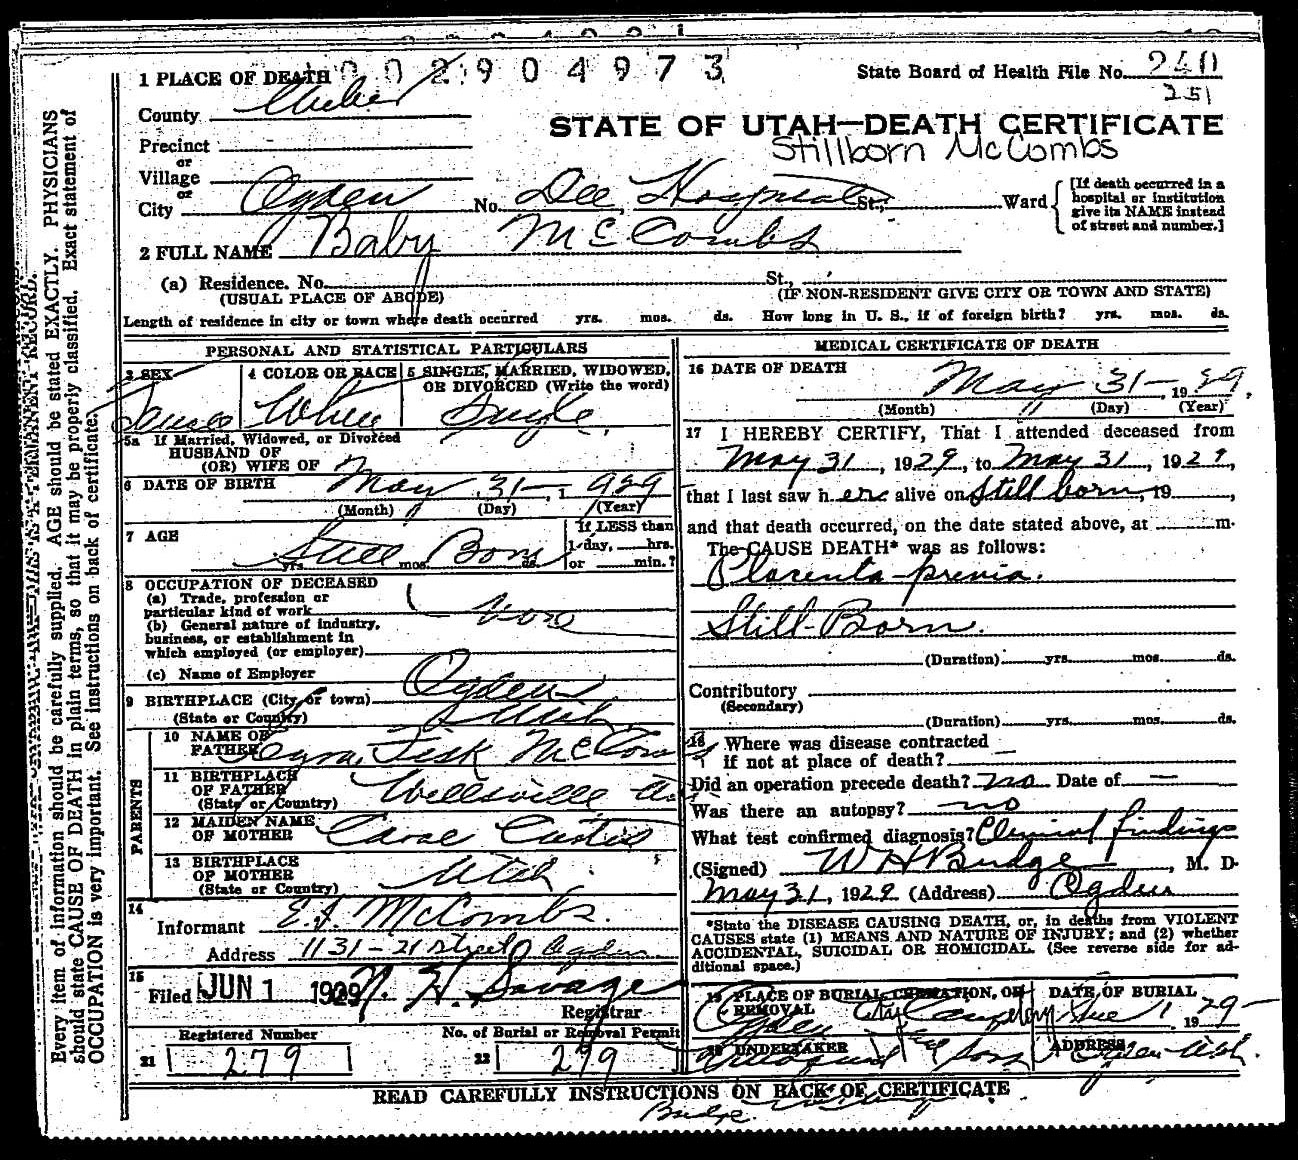 002904973
1 PLACE OF DEATH
State Board of Health File No. 240
251
County Weber
STATE OF UTAH—DEATH CERTIFICATE
Stillborn McCombs
Precinct
or
Village
or
City Ogden No. Dee Hospital St., Ward
[If death occurred in a hospital or institution give its NAME instead of street and number.]
2 FULL NAME Baby McCombs
(a) Residence. No. St.,
(USUAL PLACE OF ABODE) (IF NON-RESIDENT GIVE CITY OR TOWN AND STATE)
Length of residence in city or town where death occurred yrs. mos. ds. How long in U. S., if of foreign birth? yrs. mos. ds.
PERSONAL AND STATISTICAL PARTICULARS
3 SEX 4 COLOR OR RACE 5 SINGLE, MARRIED, WIDOWED,
OR DIVORCED (Write the word)
White Single
5a If Married, Widowed, or Divorced
HUSBAND OF
(OR) WIFE OF
6 DATE OF BIRTH May 31- 1 929
(Month) (Day) (Year)
7 AGE Still Born
yrs. mos. ds.
If LESS than
1-day, hrs.
or min.?
8 OCCUPATION OF DECEASED
(a) Trade, profession or
particular kind of work
None
(b) General nature of industry,
business, or establishment in
which employed (or employer)
(c) Name of Employer
9 BIRTHPLACE (City or town) Ogden
(State or Country) Utah
PARENTS
10 NAME OF
FATHER Fisk McCombs
11 BIRTHPLACE
OF FATHER Wellsville
(State or Country)
12 MAIDEN NAME
OF MOTHER Curtis
13 BIRTHPLACE
OF MOTHER Utah
(State or Country)
14
Informant E. F. McCombs.
Address 1131-21 street Ogden
15
Filed JUN 1 1929 Savage
Registrar
Registered Number No. of Burial or Removal Permit
21 279 22 279
MEDICAL CERTIFICATE OF DEATH
16 DATE OF DEATH
May 31- 1929,
(Month) (Day) (Year)
17 I HEREBY CERTIFY, That I attended deceased from
May 31, 1929, to May 31, 1929,
that I last saw her alive on Still born, 19 ,
and that death occurred, on the date stated above, at m.
The CAUSE DEATH* was as follows:
Placenta previa.
Still-Born.
(Duration) yrs. mos. ds.
Contributory
(Secondary)
(Duration) yrs. mos. ds.
18 Where was disease contracted
if not at place of death? —
Did an operation precede death? no Date of —
Was there an autopsy? no
What test confirmed diagnosis? Clinical findings
(Signed) W H Budge, M. D.
May 31, 1929 (Address) Ogden
*State the DISEASE CAUSING DEATH, or, in deaths from VIOLENT
CAUSES state (1) MEANS AND NATURE OF INJURY; and (2) whether
ACCIDENTAL, SUICIDAL OR HOMICIDAL. (See reverse side for ad-
ditional space.)
19 PLACE OF BURIAL CREMATION, OR
REMOVAL
Ogden City Cemetery
DATE OF BURIAL
June 1 1929-
20 UNDERTAKER
and Sons
ADDRESS
Ogden Utah.
READ CAREFULLY INSTRUCTIONS ON BACK OF CERTIFICATE
Budge
Every item of information should be carefully supplied. AGE should be stated EXACTLY. PHYSICIANS
should state CAUSE OF DEATH in plain terms, so that it may be properly classified. Exact statement of
OCCUPATION is very important. See instructions on back of certificate.